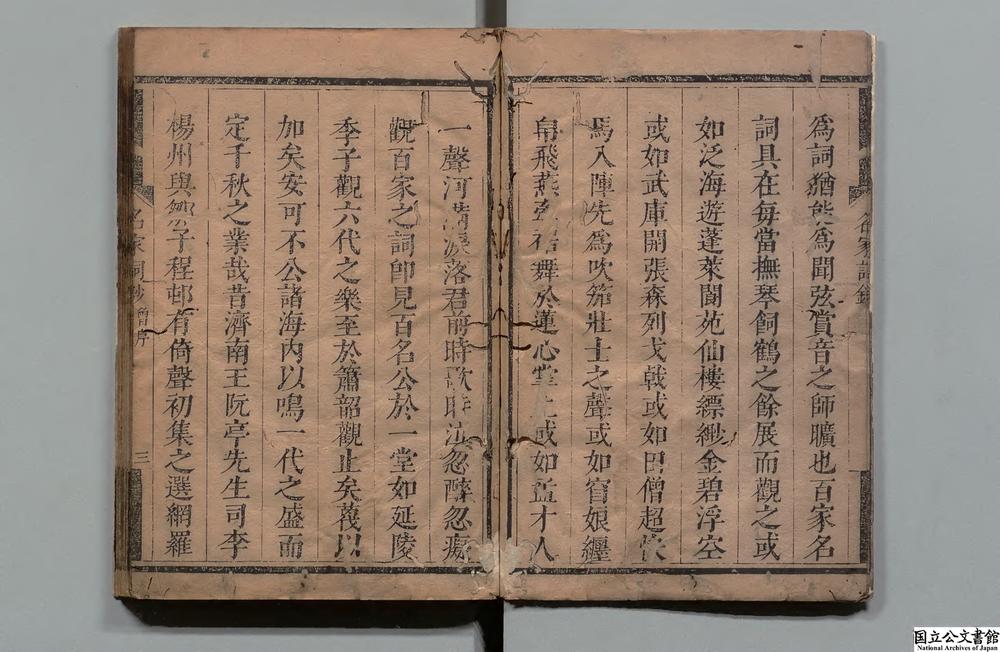 爲詞猶能爲聞弦賞音之師曠也百家名
詞具在每當撫琴飼鶴之餘展而觀之或
如泛海遊蓬萊閬苑仙樓縹緲金碧浮空
或如武庫開張森列戈戟或如巴僧超忺
馬入陣先爲吹笳壯士之聲或如窅娘纏
帛飛燕 舞於蓮心掌上或如孟才人
一聲河滿淚落君前時歌時泣忽醉忽癡
覩百家之詞卽見百名公於一堂如延陵
季子觀六代之樂至於簫韶觀止矣蔑以
加矣安可不公諸海內以鳴一代之盛而
定千秋之業哉昔濟南王阮亭先生司李
楊州與鄒子程邨有倚聲初集之選網羅
名家詞鈔
名家詞鈔
曾序
三
国立公文書館
National Archives of Japan